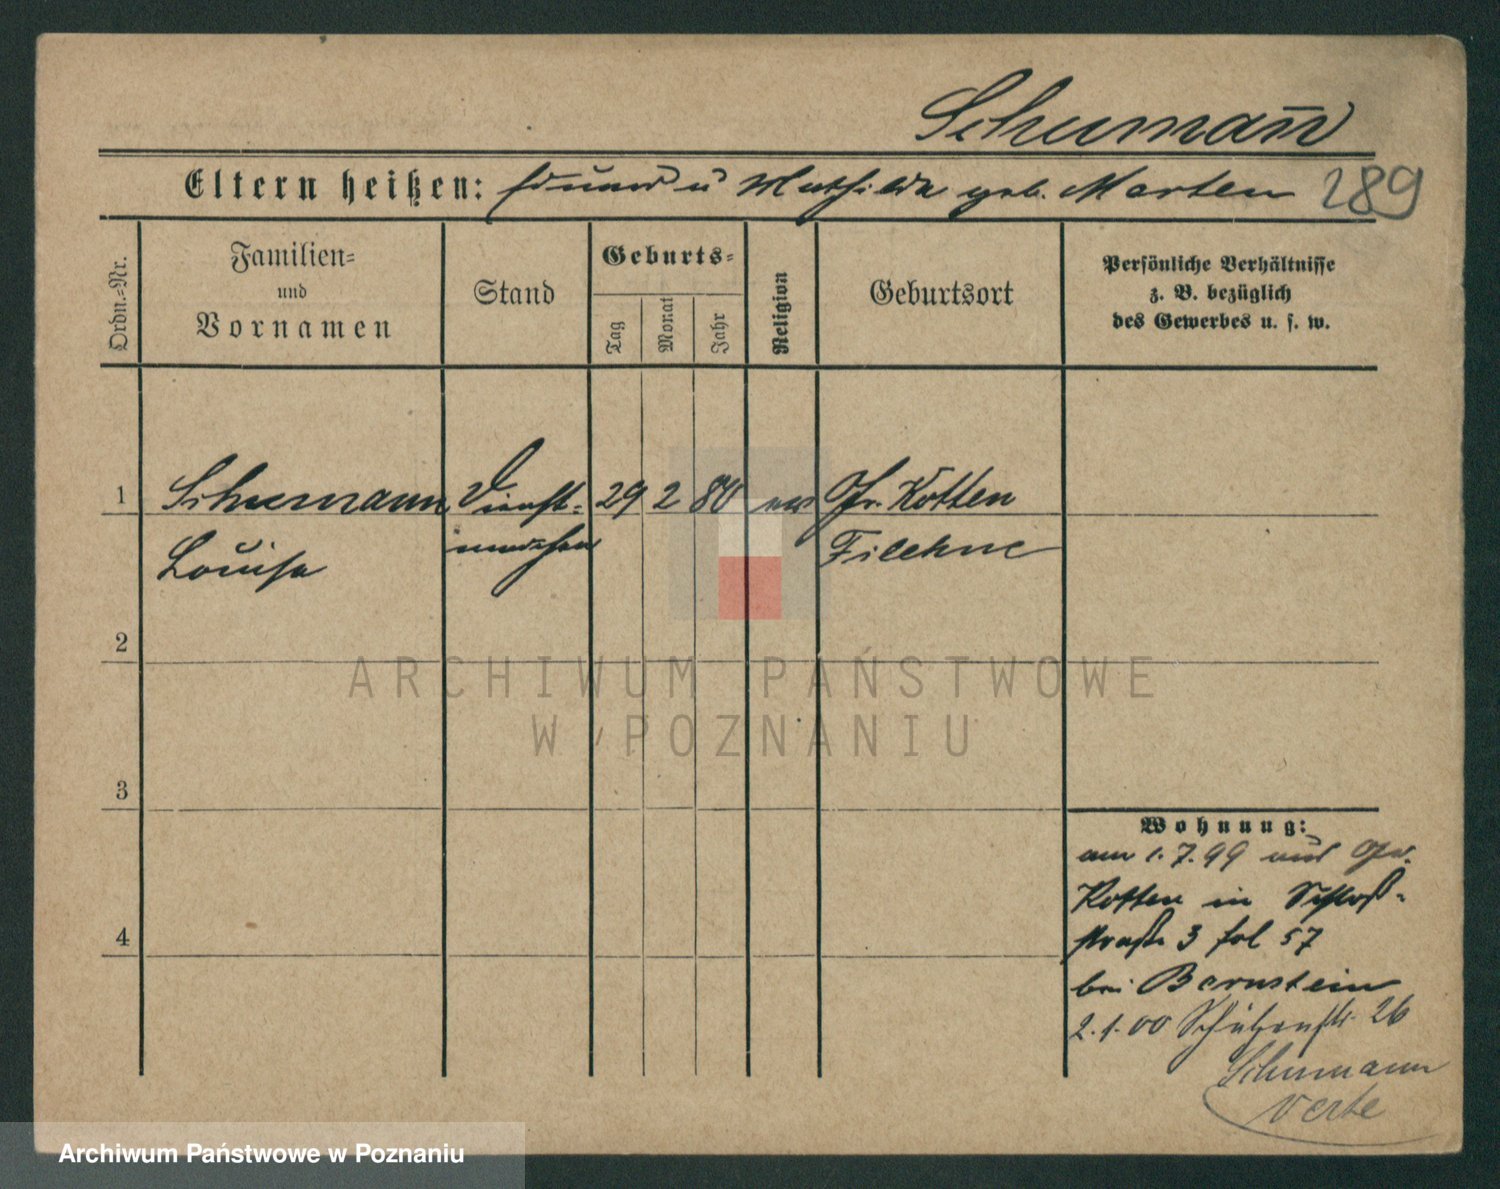 Schuman̅
Eltern heißen: Eduard u Mathilde geb. Marten 289
Ordn.-Nr.
Familien-
und
Vornamen
Stand
Geburts-
Tag
Monat
Jahr
Religion
Geburtsort
Persönliche Verhältnisse
z. B. bezüglich
des Gewerbes u. s. w.
1 Schumann Dienst- 29 2 80 ev Gr. Kotten
Louise mädchen Filehne
2
3
4
Wohnung:
am 1.7.99 aus Gr.
Kotten in Schloß-
straße 3 fol 57
bei Bernstein
2.1.00 Schützenstr. 26
Schumann
verte
ARCHIWUM PAŃSTWOWE
W POZNANIU
Archiwum Państwowe w Poznaniu